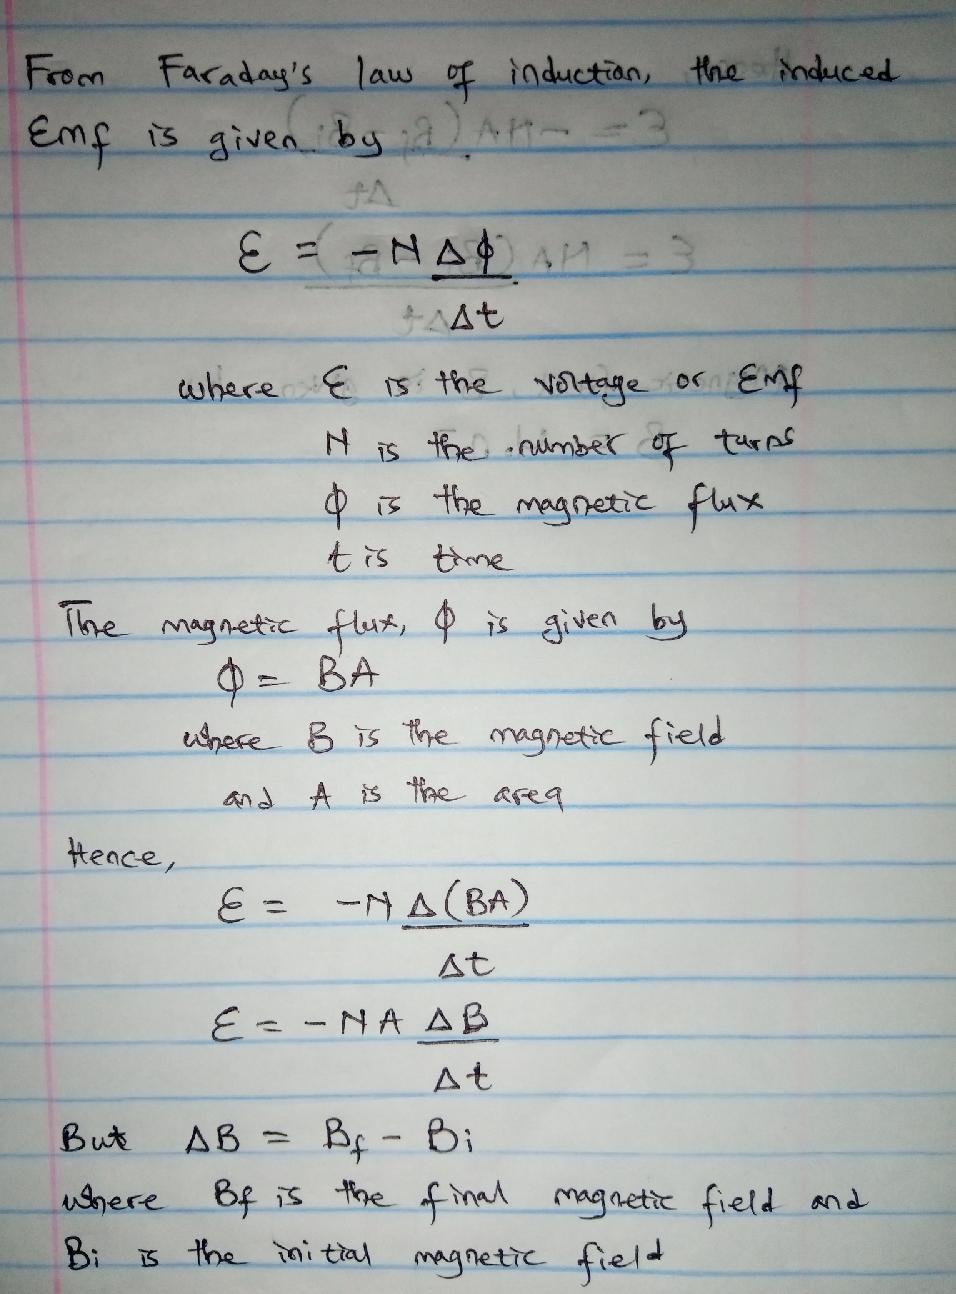 From Faraday's law of induction, the induced
Emf is given by
Ɛ = -N Δϕ
Δt
where Ɛ is the voltage or Emf
N is the number of turns
ϕ is the magnetic flux
t is time
The magnetic flux, ϕ is given by
ϕ = BA
where B is the magnetic field
and A is the area
Hence,
Ɛ = -N Δ(BA)
Δt
Ɛ = -NA ΔB
Δt
But ΔB = Bf - Bi
where Bf is the final magnetic field and
Bi is the initial magnetic field